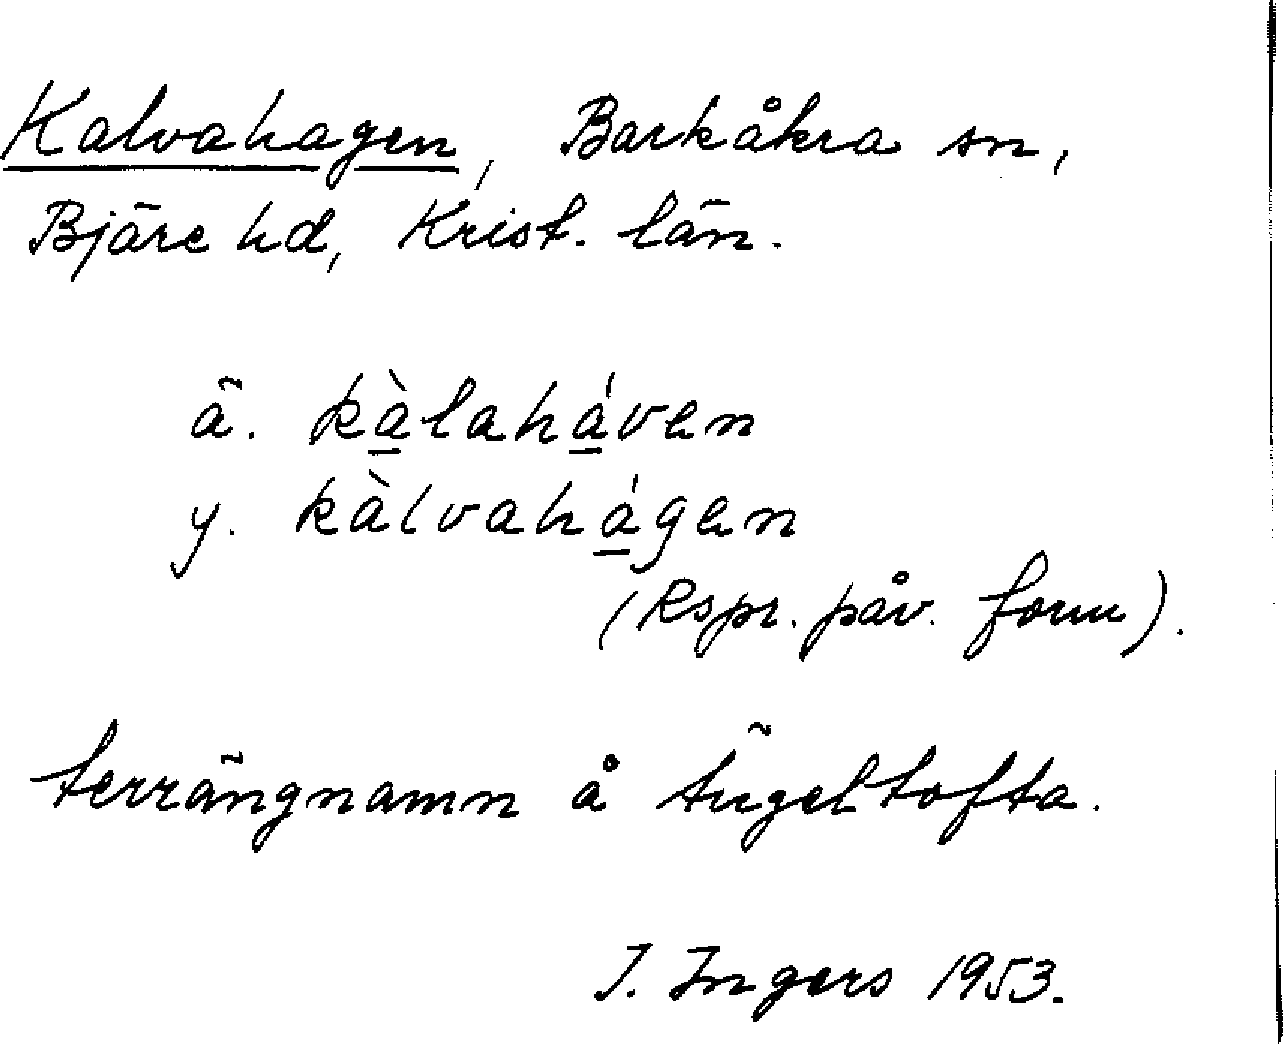 Kalvahagen, Barkåkra sn,
Bjäre hd, Krist. län.
ä. kàlaháven
y. kàlvahágen
(Rspr. påv. form).
terrängnamn å Ängeltofta.
I. Ingers 1953.